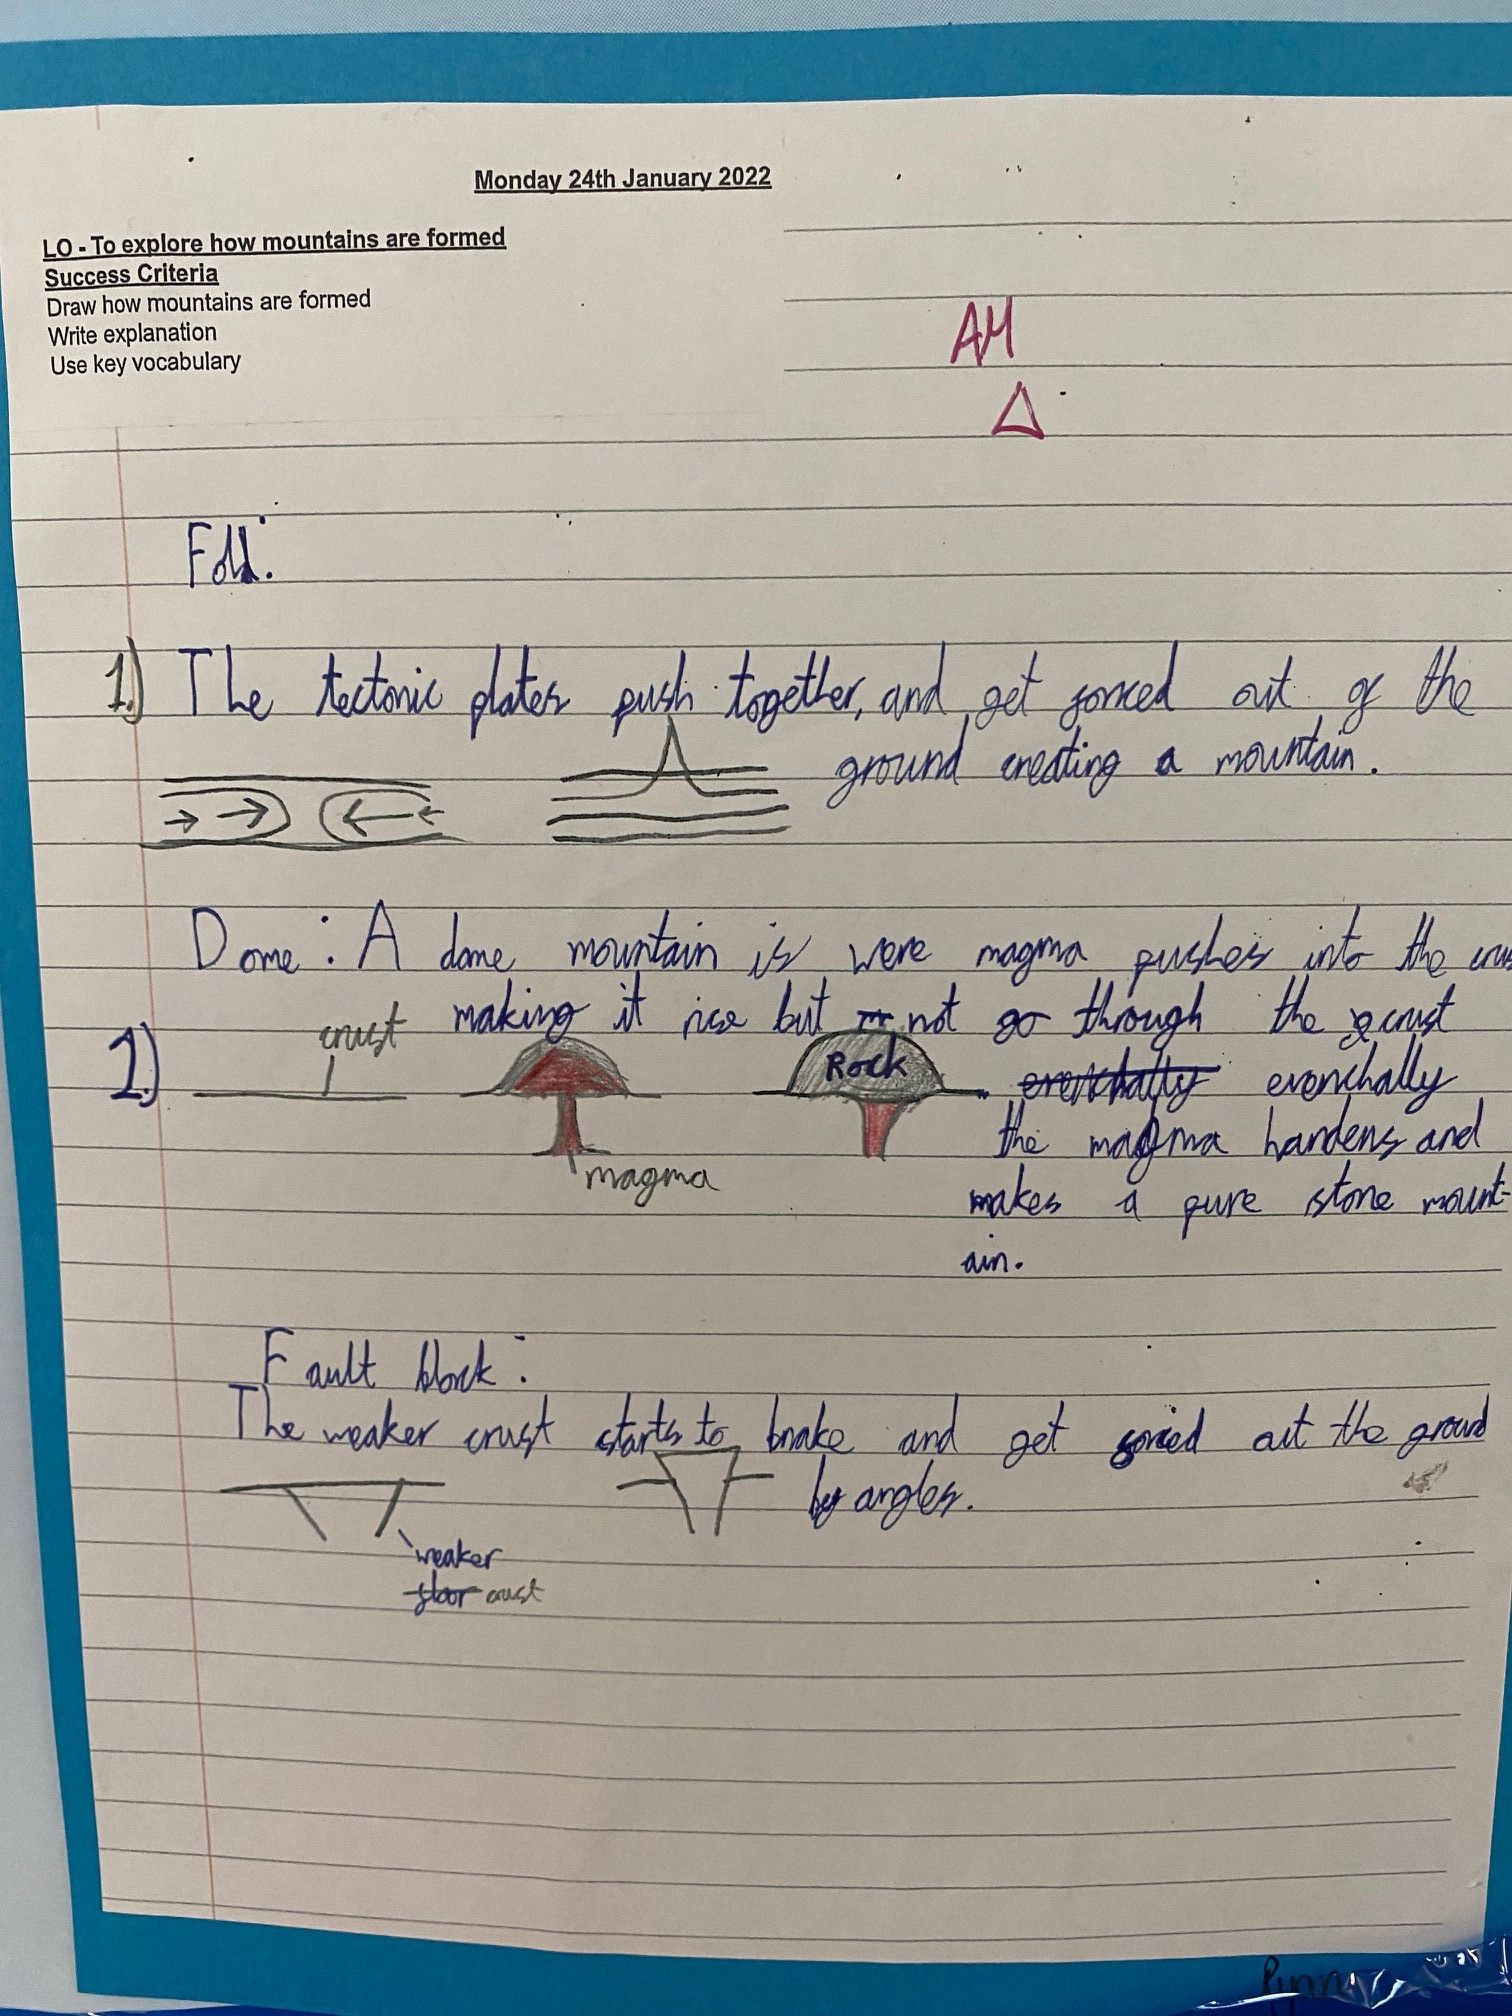 Monday 24th January 2022
LO - To explore how mountains are formed
Success Criteria
Draw how mountains are formed
Write explanation
Use key vocabulary
AM
Fold:
1.) The tectonic plates push together, and get forced out of the
ground creating a mountain.
Dome: A dome mountain is were magma pushes into the
making it rise but not go through the crust
crust
2.)
Rock
evenchally
the magma hardens and
magma
makes a pure stone mount-
ain.
Fault block:
The weaker crust starts to brake and get forced out the ground
by angles.
weaker
floor crust